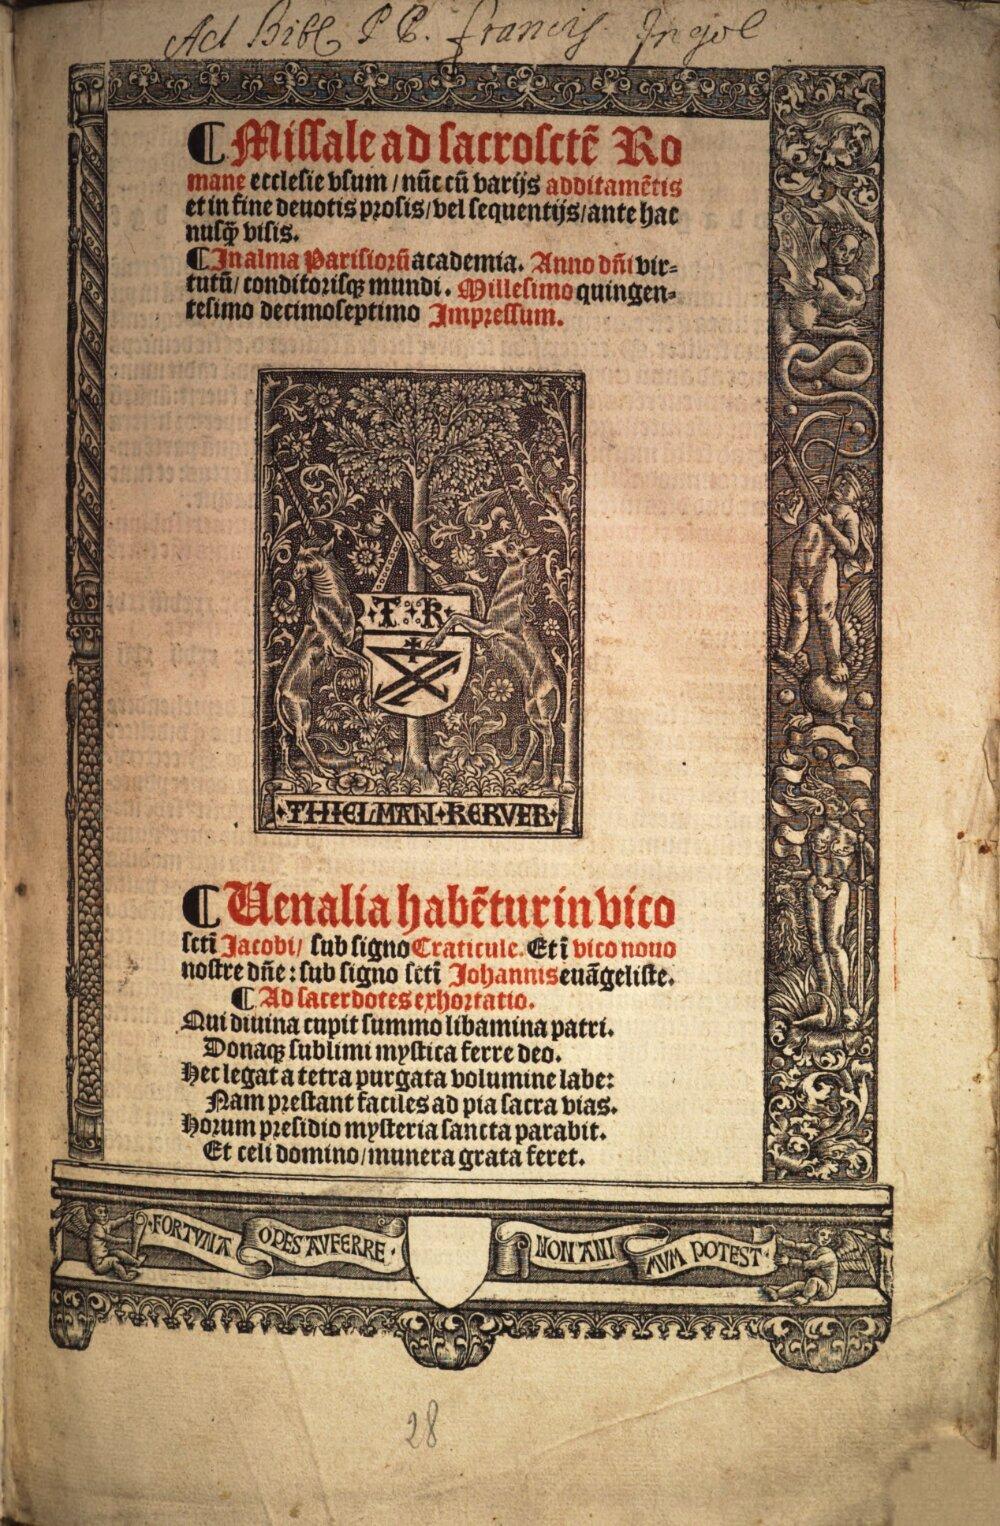 Ad Bibl P P. Francis. Ingol
¶ Missale ad sacrosctẽ Ro
mane ecclesie vsum / nũc cũ varijs additamẽtis
et in fine deuotis prosis / vel sequentijs / ante hac
nusq̃ visis.
¶ In alma Parisiorũ academia. Anno dñi vir⸗
tutũ / conditorisqꝫ mundi. Millesimo quingen⸗
tesimo decimoseptimo Impressum.
T R
THIELMAN KERVER
¶ Uenalia habẽtur in vico
scti Jacobi / sub signo Craticule. Et ĩ vico nouo
nostre dñe : sub signo scti Johannis euãgeliste.
¶ Ad sacerdotes exhortatio.
Qui diuina cupit summo libamina patri.
Donaqꝫ sublimi mystica ferre deo.
Hec legat a tetra purgata volumine labe:
Nam prestant faciles ad pia sacra vias.
Horum presidio mysteria sancta parabit.
Et celi domino / munera grata feret.
FORTVNA OPES AVFERRE · NON ANI MVM POTEST ·
28